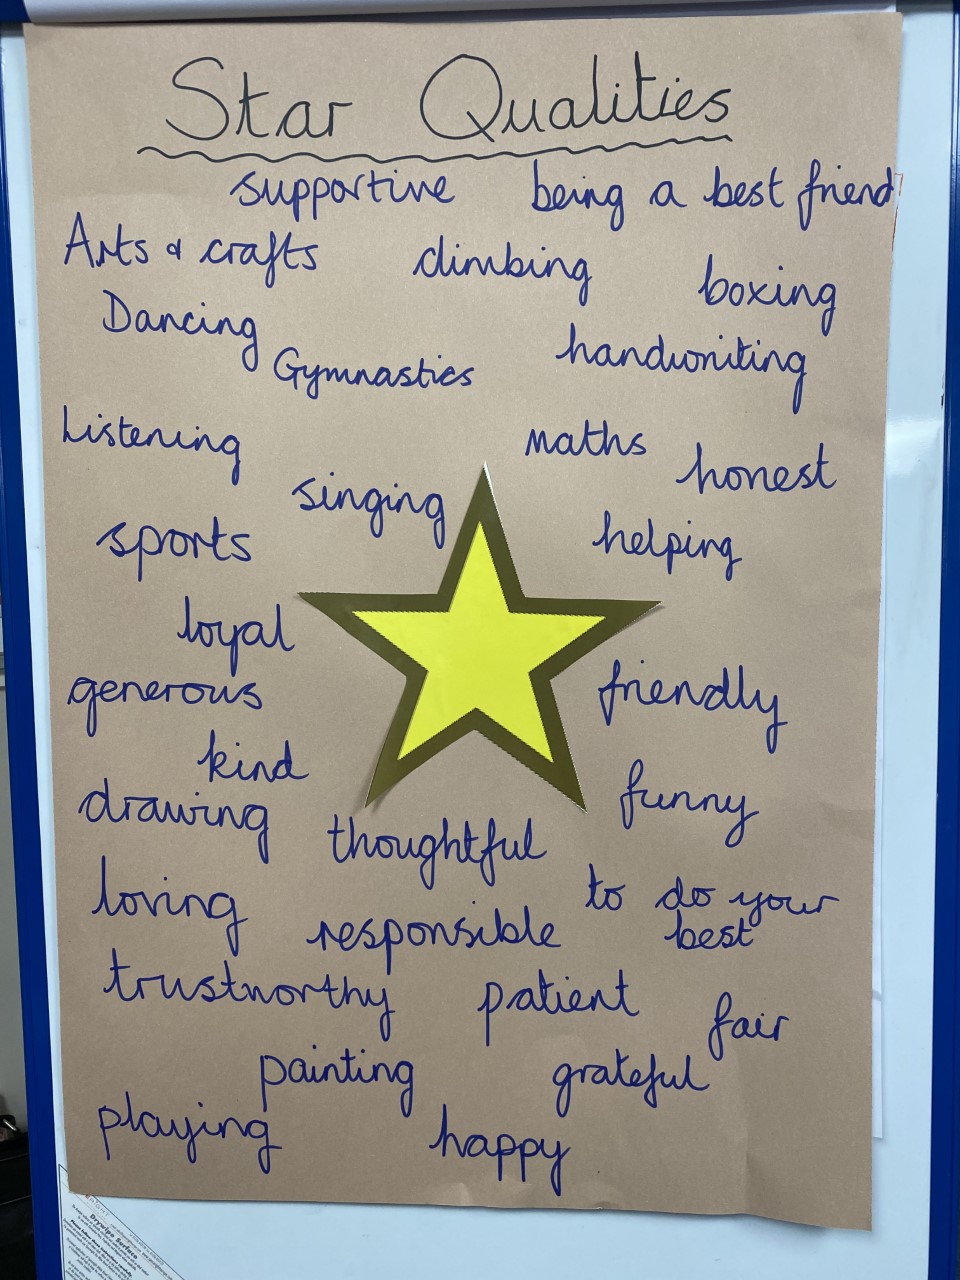 Star Qualities
supportive being a best friend
Arts & crafts climbing boxing
Dancing
Gymnastics handwriting
Listening maths honest
singing
sports helping
loyal
generous friendly
kind
drawing funny
thoughtful
loving to do your
responsible best
trustworthy patient fair
painting grateful
playing happy
Drywipe Surface